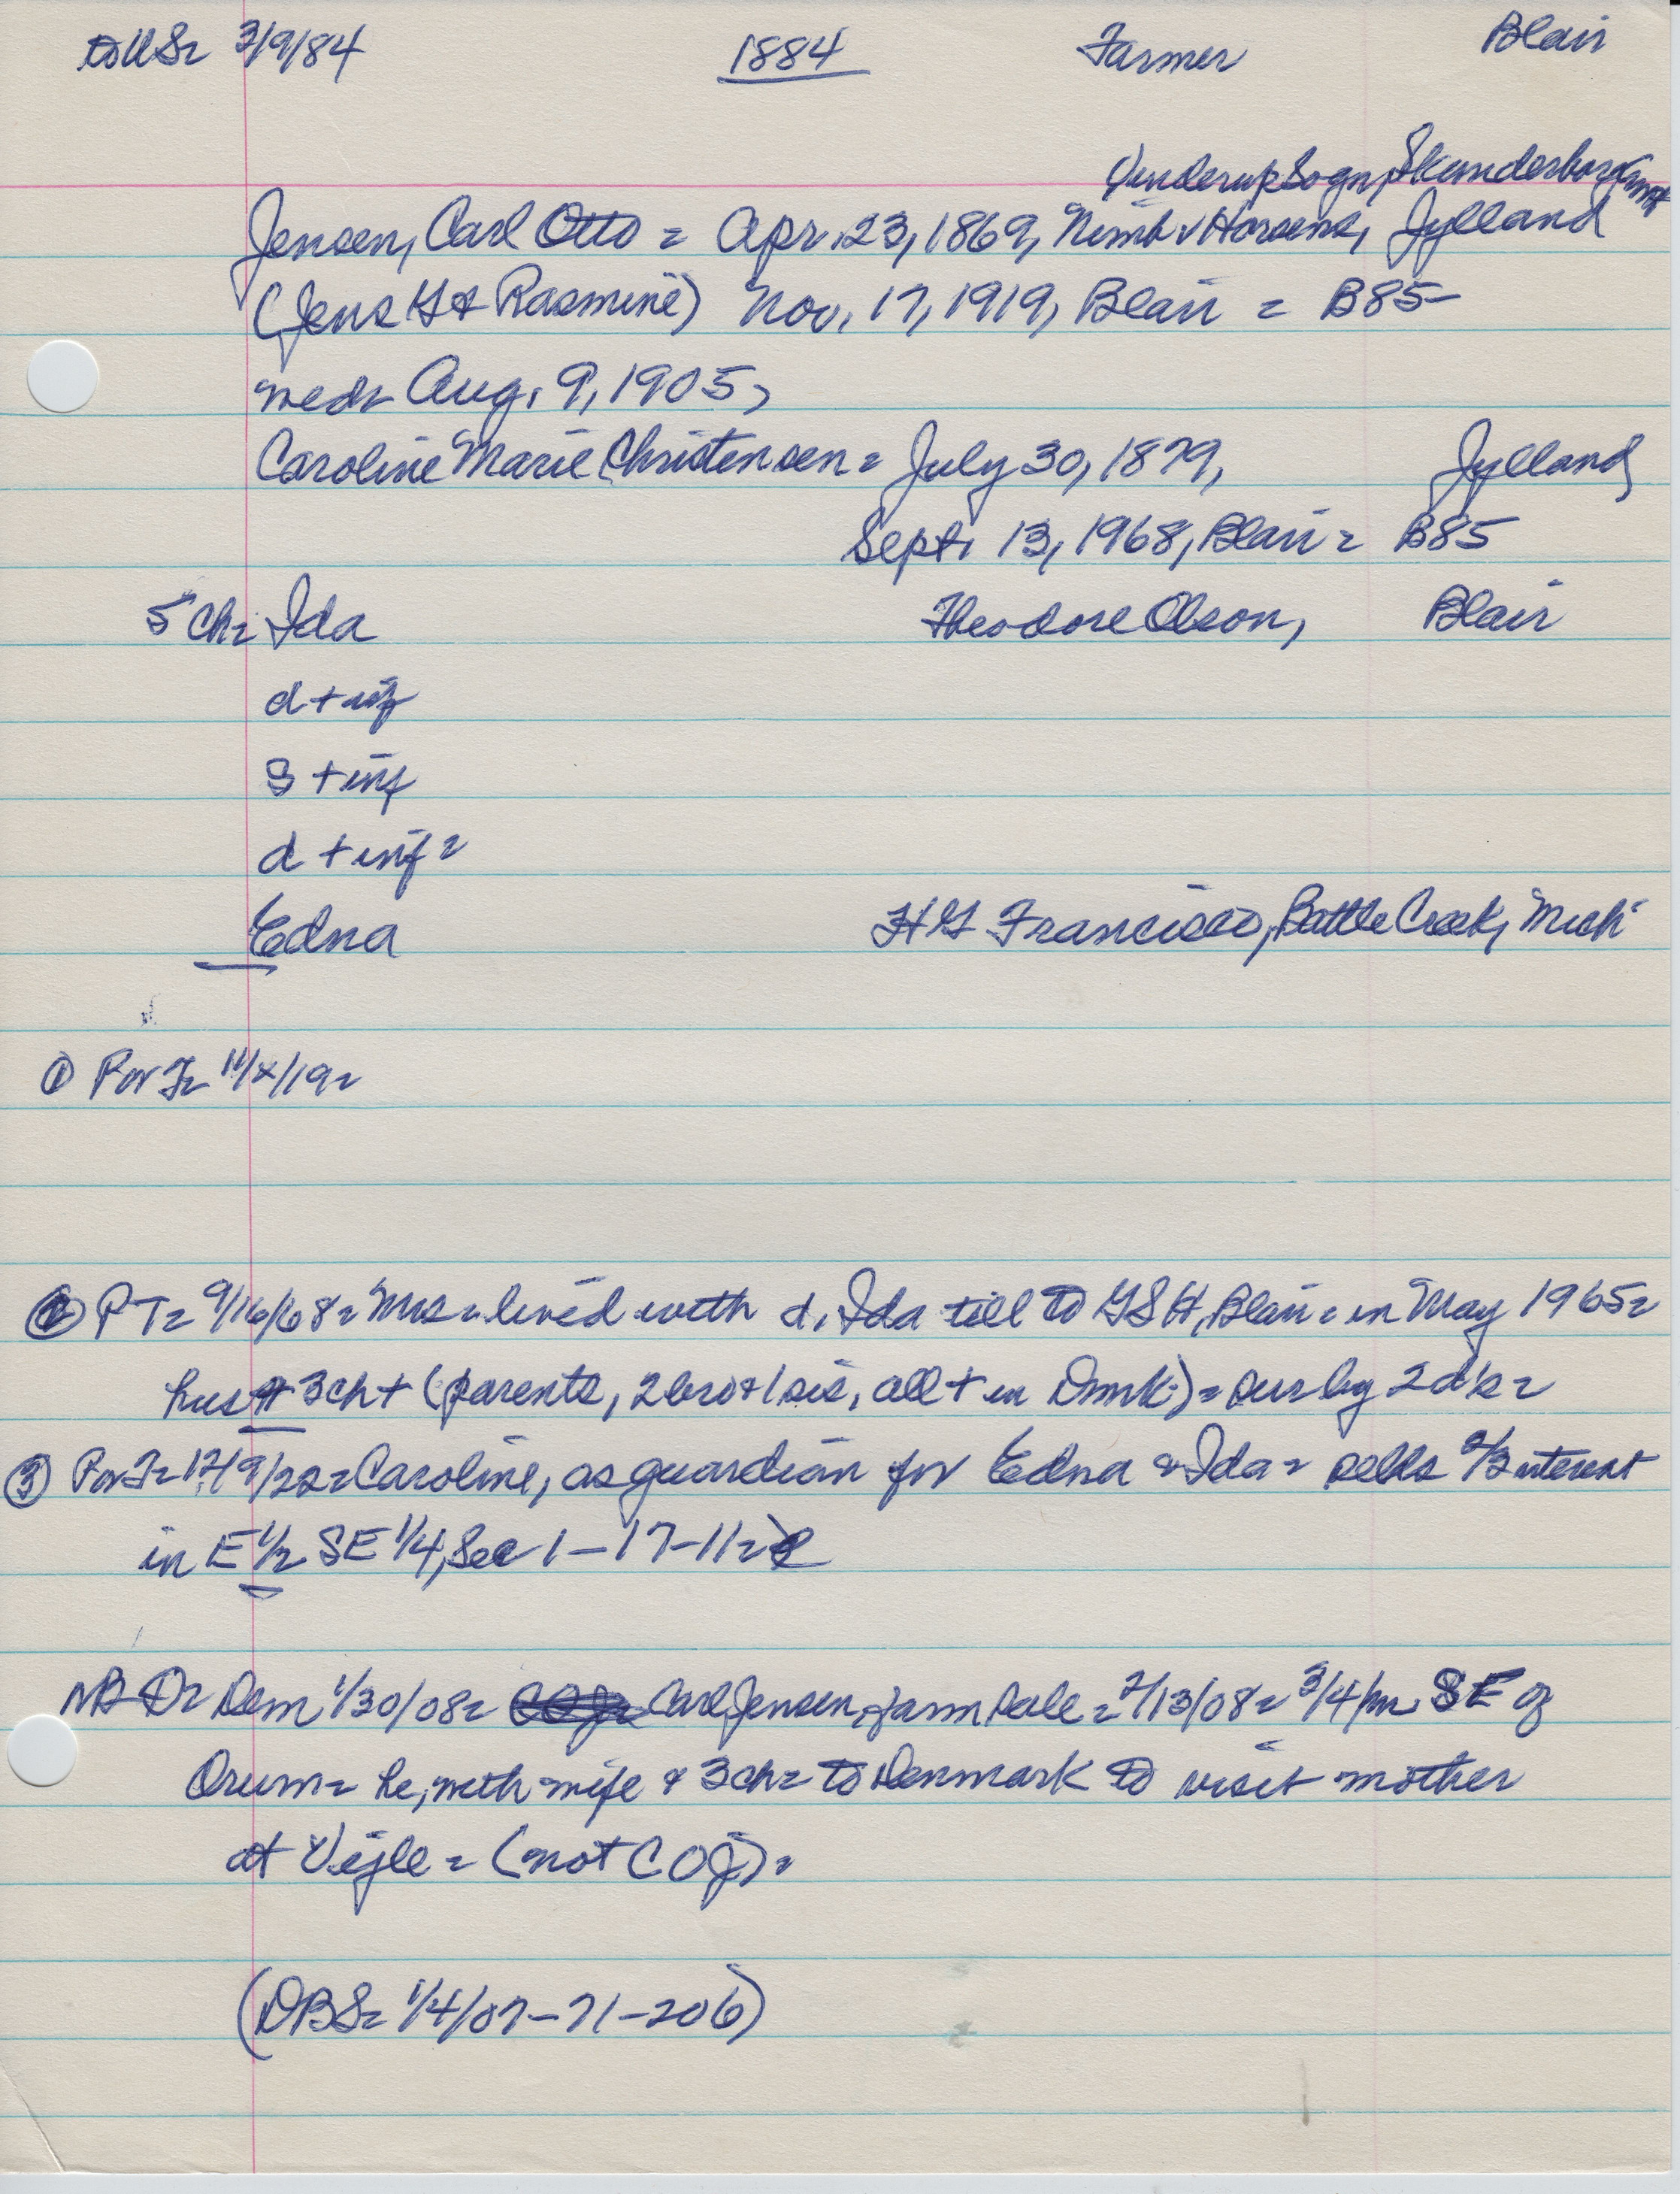 to US= 3/9/84 1884 Farmer Blair
Vinderup Sogn, Skanderborg Amt
Jensen, Carl Otto = Apr. 23, 1869, Nimb v Horsens, Jylland
(Jens G & Rasmine) Nov. 17, 1919, Blair = B85-
wed= Aug. 9, 1905,
Caroline Marie Christensen = July 30, 1879, Jylland
Sept. 13, 1968, Blair = B85
5 ch= Ida Theodore Olson, Blair
d + inf
s + inf
d + inf =
Edna H G Francisco, Battle Creek, Mich
① P or T= 11/x/19=
② PT= 9/16/68= Mrs = lived with d, Ida till to GSH, Blair = in May 1965=
hus & 3 ch + (parents, 2 bro & 1 sis, all + in Dnmk) = sur by 2 d's =
③ P or T= 12/9/22= Caroline, as guardian for Edna & Ida = sells 2/3 interest
in E 1/2 SE 1/4, Sec 1-17-11=
NB D= Dem 1/30/08= Carl Jensen, farm sale = 2/13/08= 3/4 m SE of
Orum= he, with wife & 3 ch= to Denmark to visit mother
at Vejle = (not COJ) =
(DBS= 1/4/07-71-206)